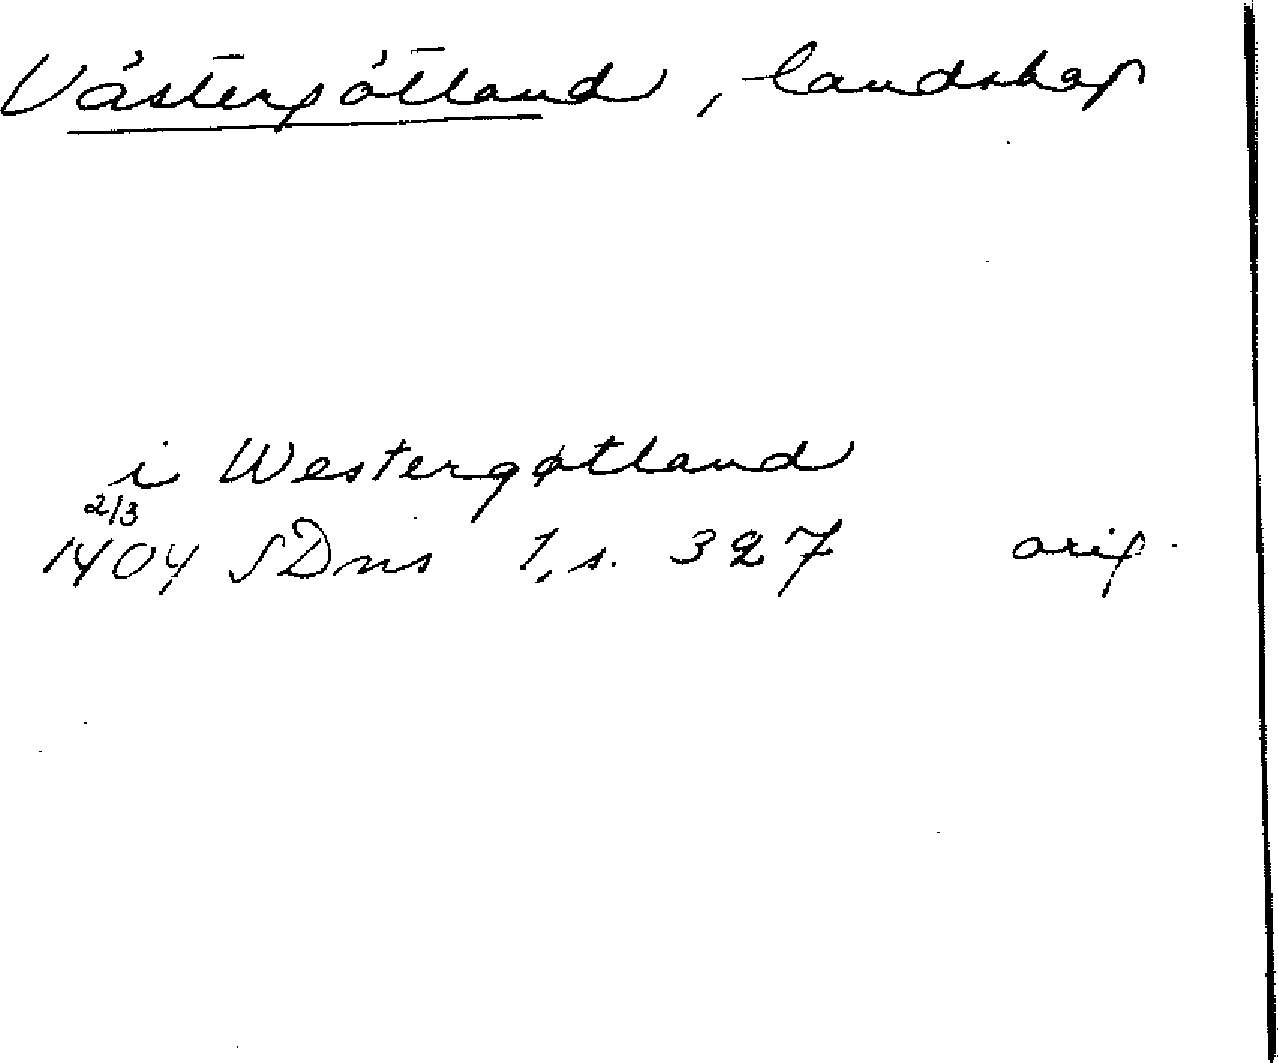 Västergötland, landskap
i Westergøtland
2/3
1404 SDns 1, s. 327 orig.